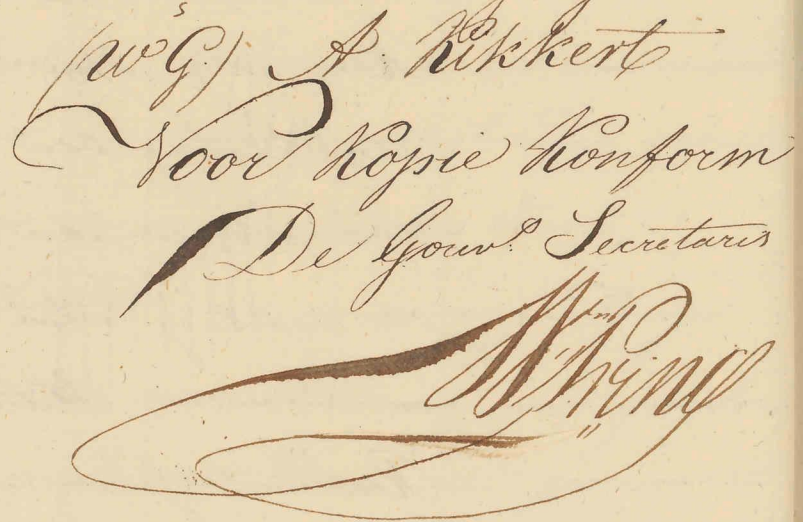 (W^s G.) A Kikkert
Voor Kopie Konform
De Gouv^s Secretaris
W^m Prince